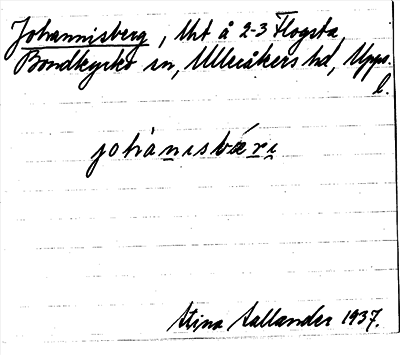 Johannisberg, lht å 2-3 Flogsta,
Bondkyrko sn, Ulleråkers hd, Upps.
l.
johànısbæ̀rı
Stina Sallander 1937.